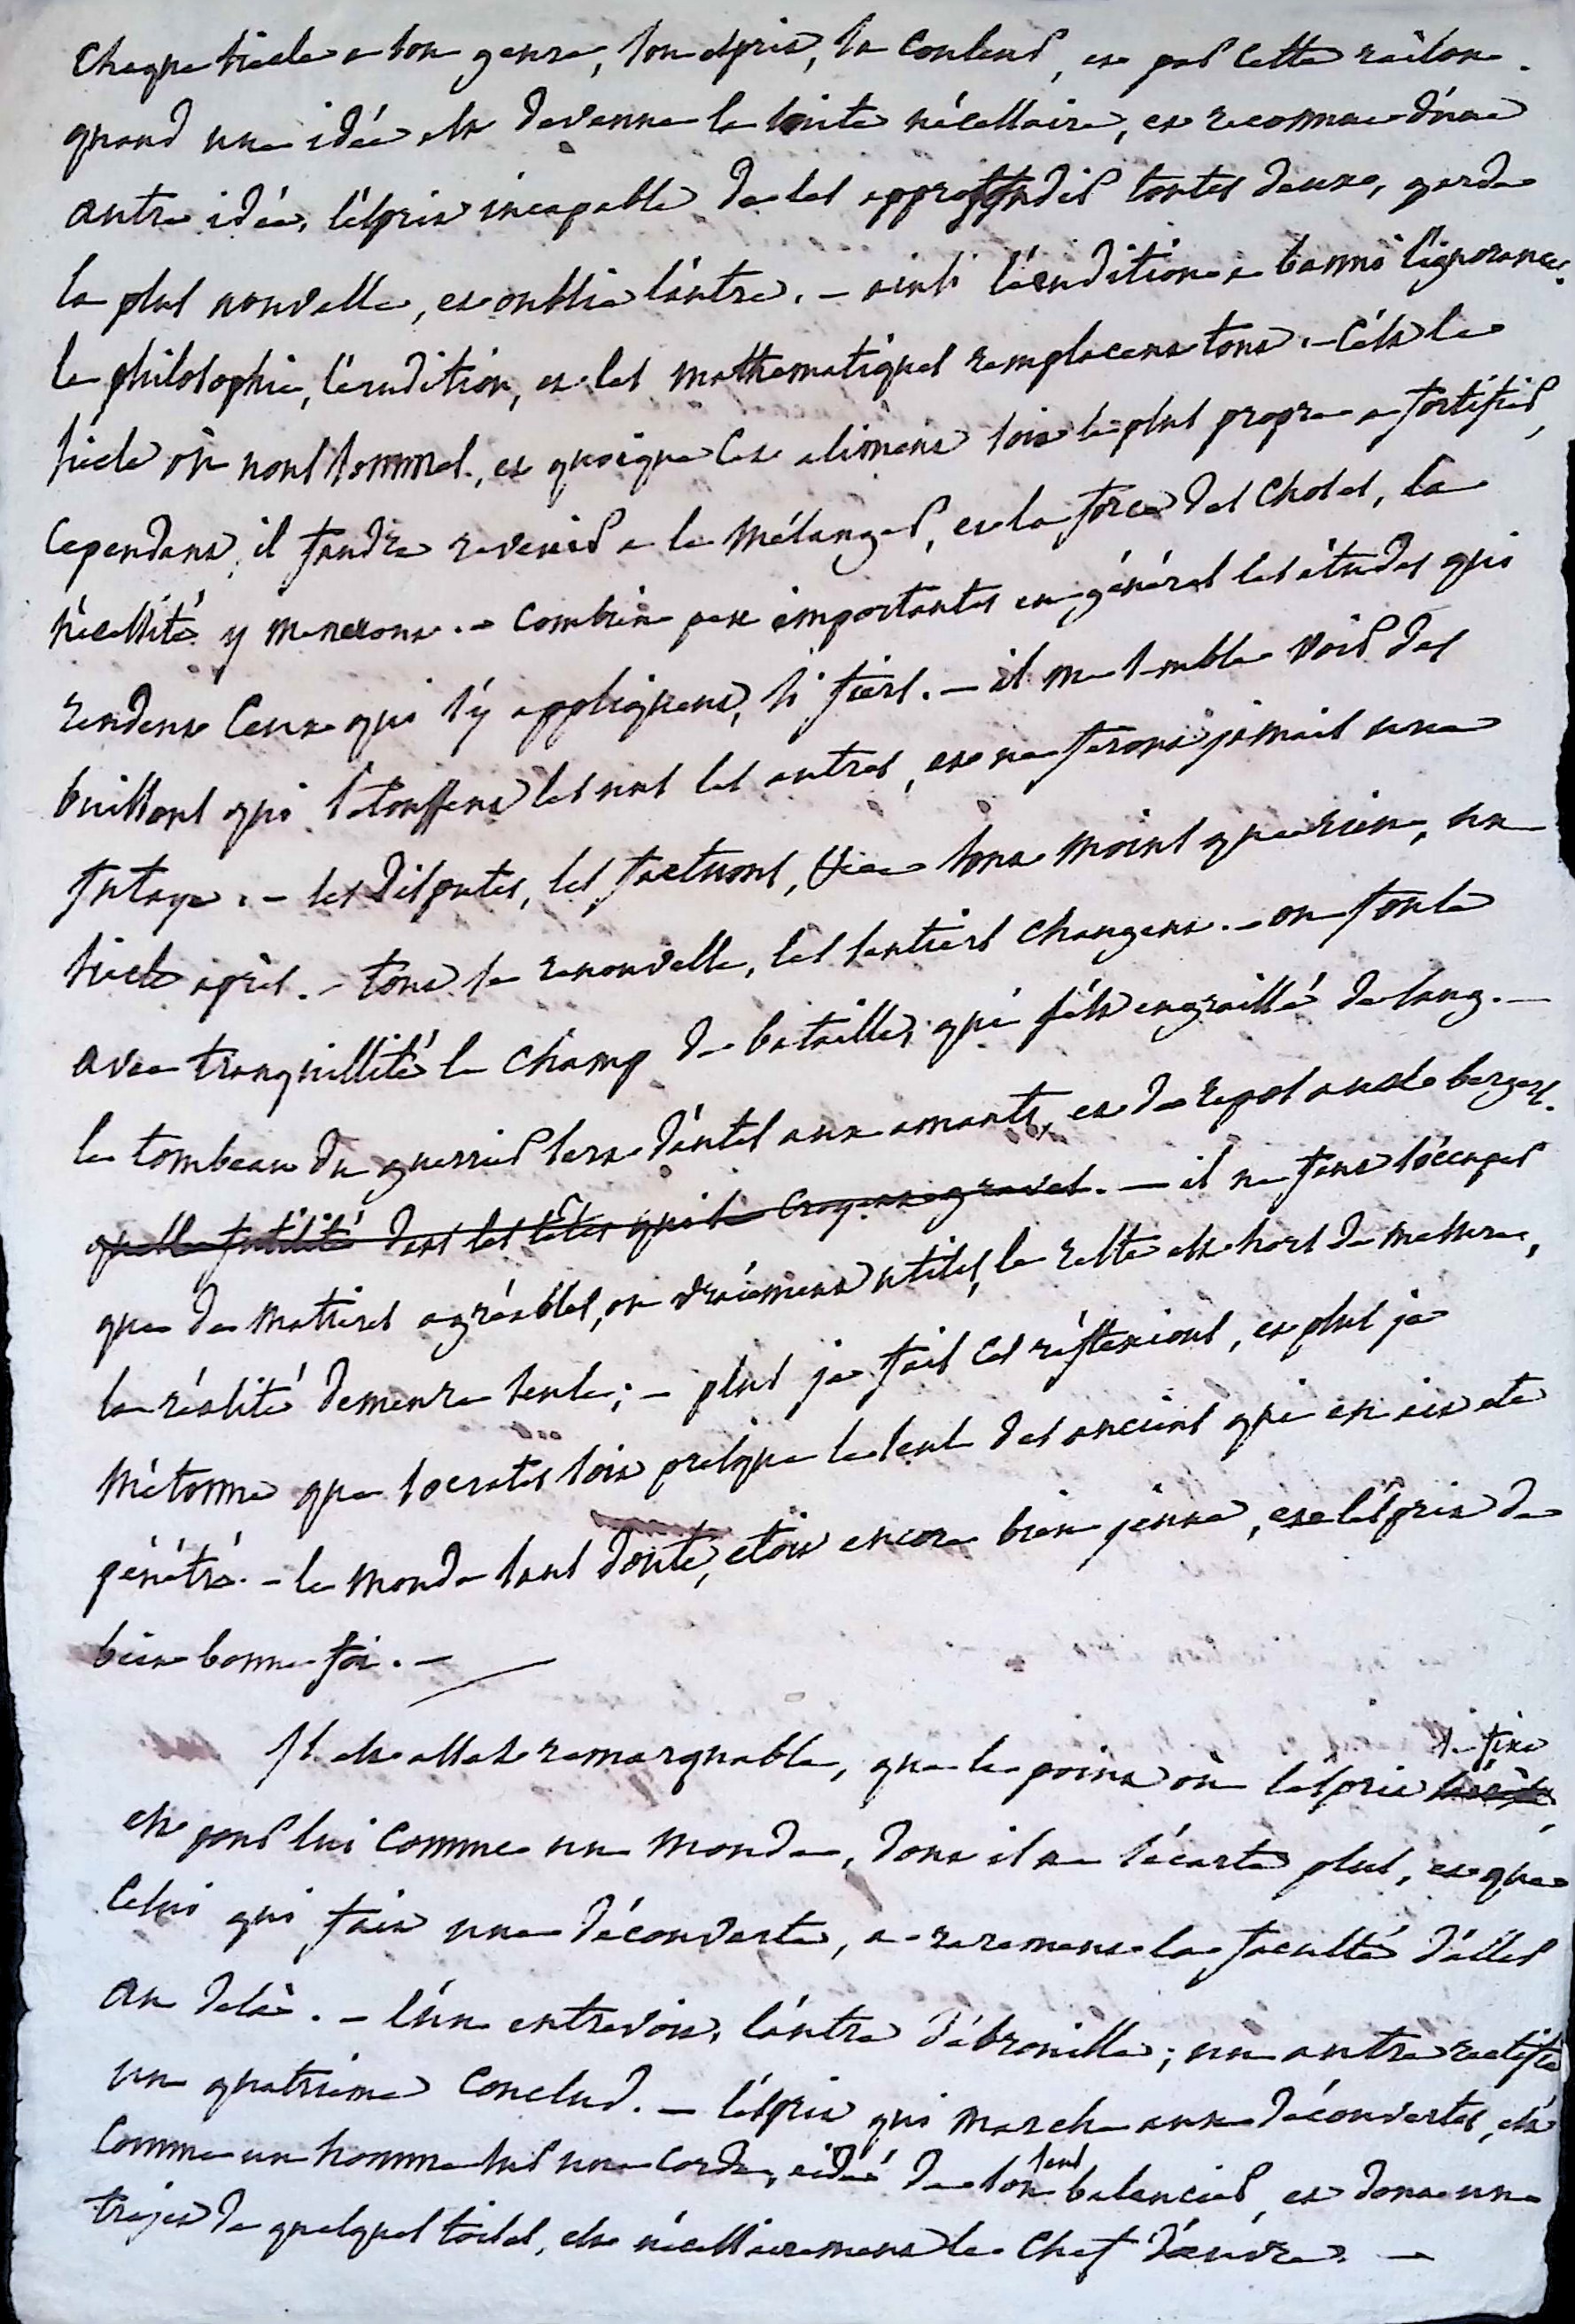 Chaque siecle a son genre, son esprit, sa couleur, et par cette raison.
quand une idée est devenue la suite nécessaire, et reconnue d'une
autre idée, l'esprit incapable de les approffondir toutes deux, garde
la plus nouvelle, et oublie l'autre. - ainsi l'érudition a banni l'ignorance.
la philosophie, l'érudition, et les mathematiques remplacent tout. - C'est le
siecle où nous sommes, et quoique cet aliment soit le plus propre a fortifier,
cependant, il faudra revenir a le mélanger, et la force des choses, la
nécessité y menera. - Combien peu importantes en général les études qui
rendent ceux qui s'y appliquent, si fiers. - il me semble voir des
buissons qui s'etouffent les uns les autres, et ne feront jamais une
futaye. - les disputes, les factions, tout sont moins que rien, un
siecle après. - tout se renouvelle, les sentiers changent. - on foule
avec tranquillité le champ de bataille, qui s'est engraissé de sang. -
le tombeau du guerrier sert d'autel aux amants, et de repos aux bergers.
quelle futilité dans les têtes qui se croyent graves. - il ne faut s'occuper
que de matieres agréables, ou vraiment utiles, le reste est hors de mesure,
la réalité demeure seule; - plus je fais ces réflexions, et plus je
m'étonne que socrates soit presque le seul des anciens qui en ait eté
pénétré. - le monde sans doute, etoit encore bien jeune, et l'esprit de
bien bonne foi. -
Il est assez remarquable, que le point où l'esprit se fixe
est pour lui comme un monde, dont il ne s'écarte plus, et que
celui qui fait une découverte, a rarement la faculté d'aller
au delà. - l'un entrevoit, l'autre débrouille; un autre rectifie
un quatrieme conclud. - l'esprit qui marche aux découvertes, est
comme un homme sur une corde, aidé de son seul balancier, et dont un
trajet de quelques toises, est nécessairement le chef d'œuvre. -